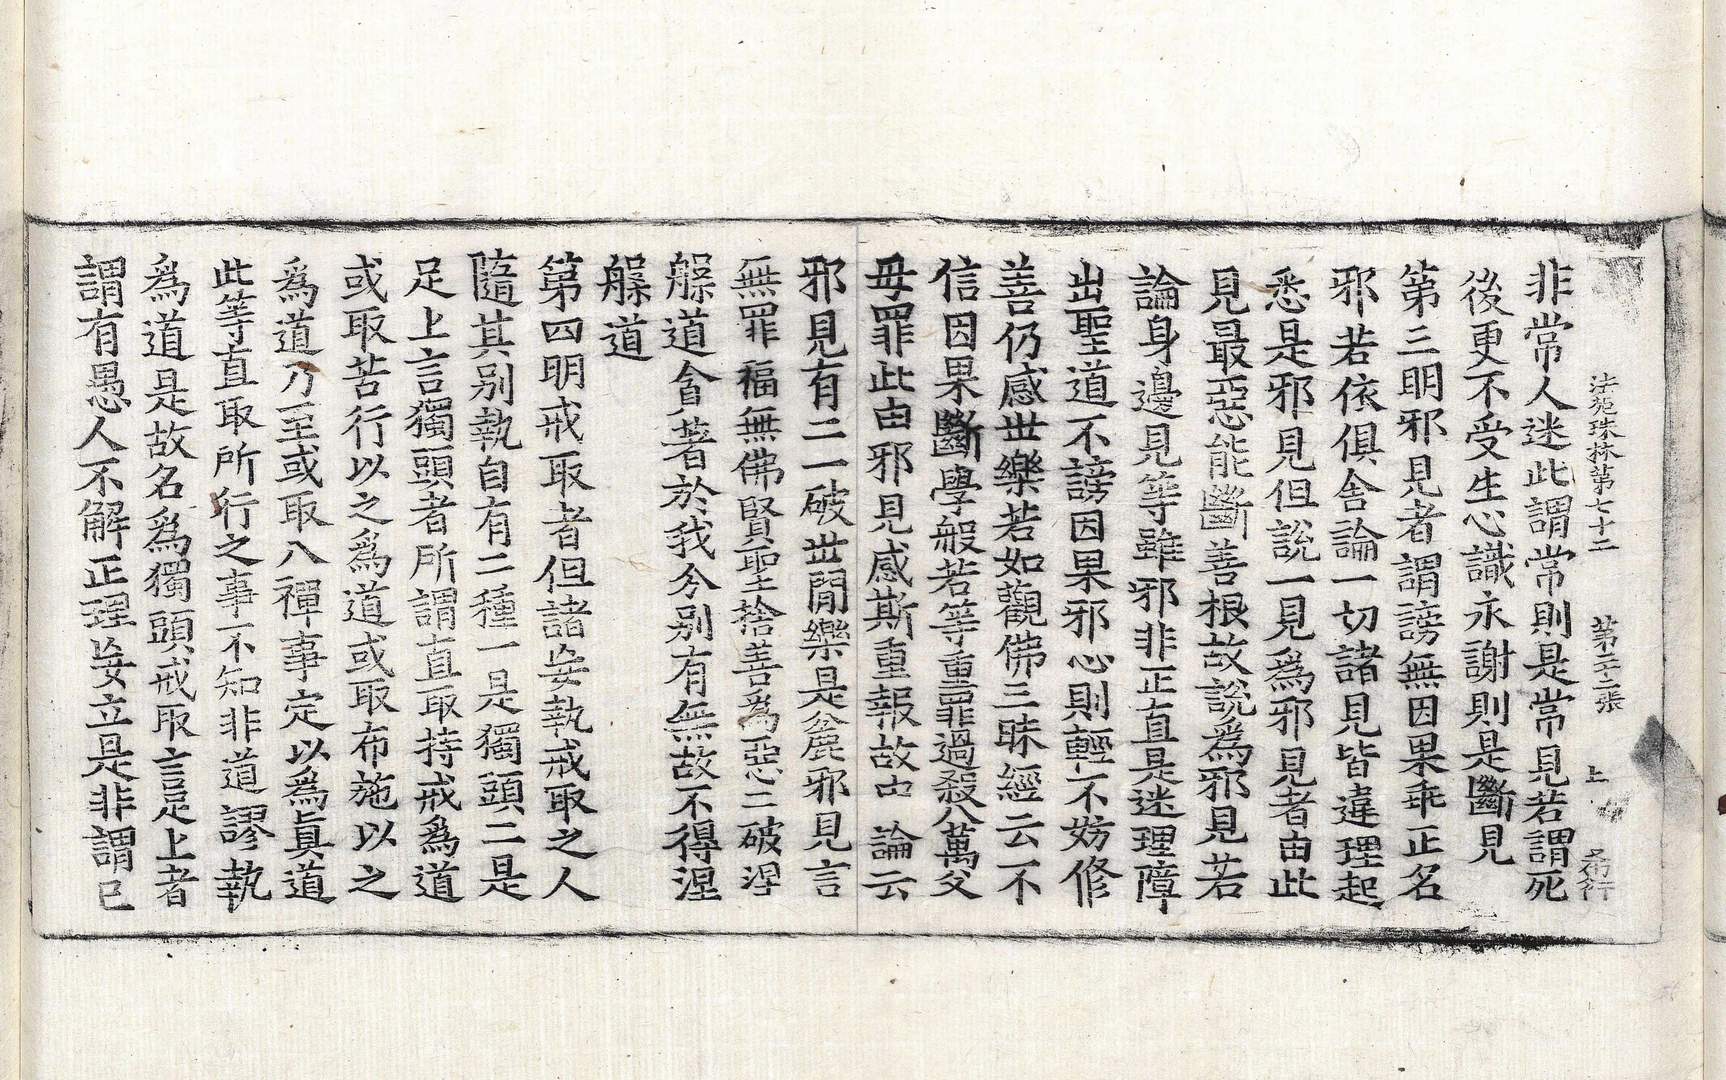 法苑珠林第七十二 第二十二張 上 希行
非常人迷此謂常則是常見若謂死
後更不受生心識永謝則是斷見
第三明邪見者謂謗無因果乖正名
邪若依俱舍論一切諸見皆違理起
悉是邪見但說一見爲邪見者由此
見最惡能斷善根故說爲邪見若
論身邊見等雖邪非正直是迷理障
出聖道不謗因果邪心則輕不妨修
善仍感世樂若如觀佛三昧經云不
信因果斷學般若等重罪過殺八萬父
母罪此由邪見感斯重報故由 論云
邪見有二一破世間樂是麁邪見言
無罪福無佛賢聖捨善爲惡二破涅
槃道貪著於我分別有無故不得涅
槃道
第四明戒取者但諸妄執戒取之人
隨其別執自有二種一是獨頭二是
足上言獨頭者所謂直取持戒爲道
或取苦行以之爲道或取布施以之
爲道乃至或取八禪事定以爲眞道
此等直取所行之事不知非道謬執
爲道是故名爲獨頭戒取言足上者
謂有愚人不解正理妄立是非謂己